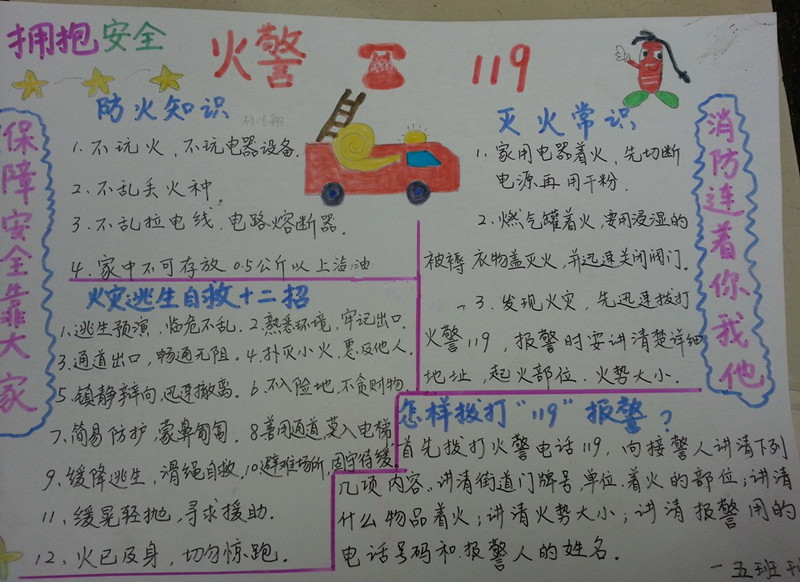 拥抱安全
火警 119
保障安全靠大家
防火知识
1. 不玩火、不玩电器设备.
2. 不乱丢火种。
3. 不乱拉电线、电路熔断器.
4. 家中不可存放0.5公斤以上油
火灾逃生自救十二招
1.逃生预演，临危不乱. 2.熟悉环境，牢记出口.
3.通道出口，畅通无阻. 4.扑灭小火，惠及他人.
5.镇静辨向，迅速撤离. 6.不入险地，不贪财物.
7.简易防护，蒙鼻匍匐. 8善用通道莫入电梯.
9.缓降逃生，滑绳自救. 10.避难场所，固守待援.
11.缓晃轻抛，寻求援助.
12.火已及身，切勿惊跑.
灭火常识
1. 家用电器着火，先切断
电源再用干粉.
2.燃气罐着火，要用浸湿的
被褥衣物盖灭火，并迅速关闭阀门.
3. 发现火灾，先迅速拨打
火警119，报警时要讲清楚详细
地址，起火部位、火势大小.
怎样拨打"119"报警？
首先拨打火警电话119，向接警人讲清下列
几项内容、讲清街道门牌号，单位、着火的部位；讲清
什么物品着火；讲清火势大小；讲清报警用的
电话号码和报警人的姓名.
消防连着你我他
一五班